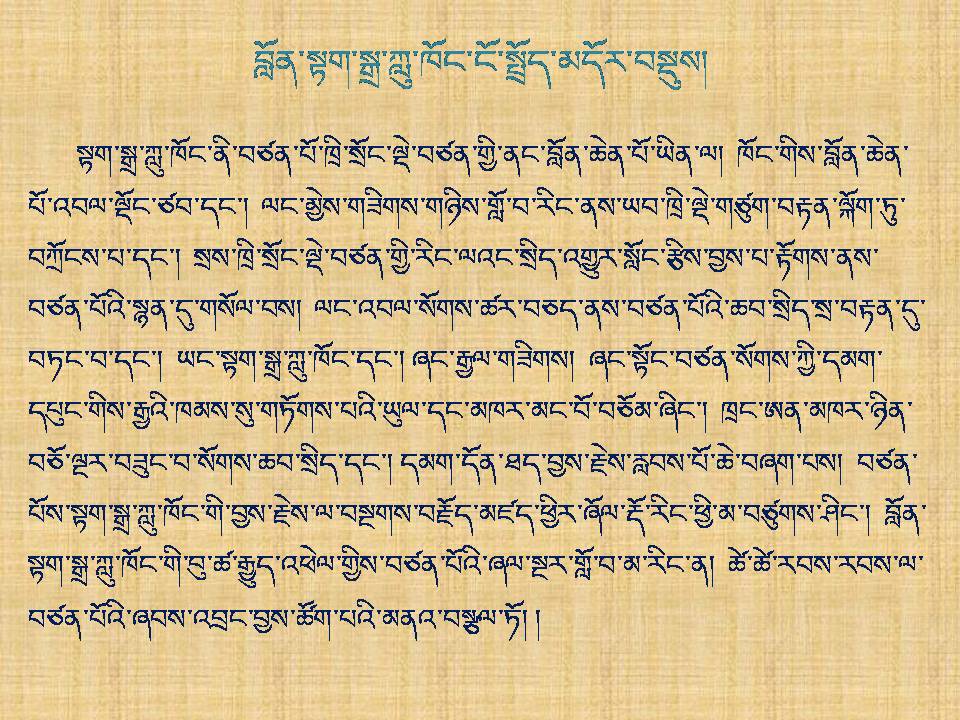 བློན་སྟག་སྒྲ་ཀླུ་ཁོང་ངོ་སྤྲོད་མདོར་བསྡུས།
སྟག་སྒྲ་ཀླུ་ཁོང་ནི་བཙན་པོ་ཁྲི་སྲོང་ལྡེ་བཙན་གྱི་ནང་བློན་ཆེན་པོ་ཡིན་ལ། ཁོང་གིས་བློན་ཆེན་
པོ་འབལ་ལྡོང་ཙབ་དང་། ལང་མྱེས་གཟིགས་གཉིས་གློ་བ་རིང་ནས་ཡབ་ཁྲི་ལྡེ་གཙུག་བརྟན་ལྐོག་ཏུ་
བཀྲོངས་པ་དང་། སྲས་ཁྲི་སྲོང་ལྡེ་བཙན་གྱི་རིང་ལའང་སྲིད་འགྱུར་སློང་རྩིས་བྱས་པ་རྟོགས་ནས་
བཙན་པོའི་སྙན་དུ་གསོལ་བས། ལང་འབལ་སོགས་ཚར་བཅད་ནས་བཙན་པོའི་ཆབ་སྲིད་སྲ་བརྟན་དུ་
བཏང་བ་དང་། ཡང་སྟག་སྒྲ་ཀླུ་ཁོང་དང་། ཞང་རྒྱལ་གཟིགས། ཞང་སྟོང་བཙན་སོགས་ཀྱི་དམག་
དཔུང་གིས་རྒྱའི་ཁམས་སུ་གཏོགས་པའི་ཡུལ་དང་མཁར་མང་པོ་བཅོམ་ཞིང་། ཁྲང་ཨན་མཁར་ཉིན་
བཅོ་ལྔར་བཟུང་བ་སོགས་ཆབ་སྲིད་དང་། དམག་དོན་ཐད་བྱས་རྗེས་རླབས་པོ་ཆེ་བཞག་པས། བཙན་
པོས་སྟག་སྒྲ་ཀླུ་ཁོང་གི་བྱས་རྗེས་ལ་བསྔགས་བརྗོད་མཛད་ཕྱིར་ཞོལ་རྡོ་རིང་ཕྱི་མ་བཙུགས་ཤིང་། བློན་
སྟག་སྒྲ་ཀླུ་ཁོང་གི་བུ་ཚ་རྒྱུད་འཕེལ་གྱིས་བཙན་པོའི་ཞལ་སྔར་གློ་བ་མ་རིང་ན། ཚེ་ཚེ་རབས་རབས་ལ་
བཙན་པོའི་ཞབས་འབྲང་བྱས་ཆོག་པའི་མནའ་བསྩལ་ཏོ། །